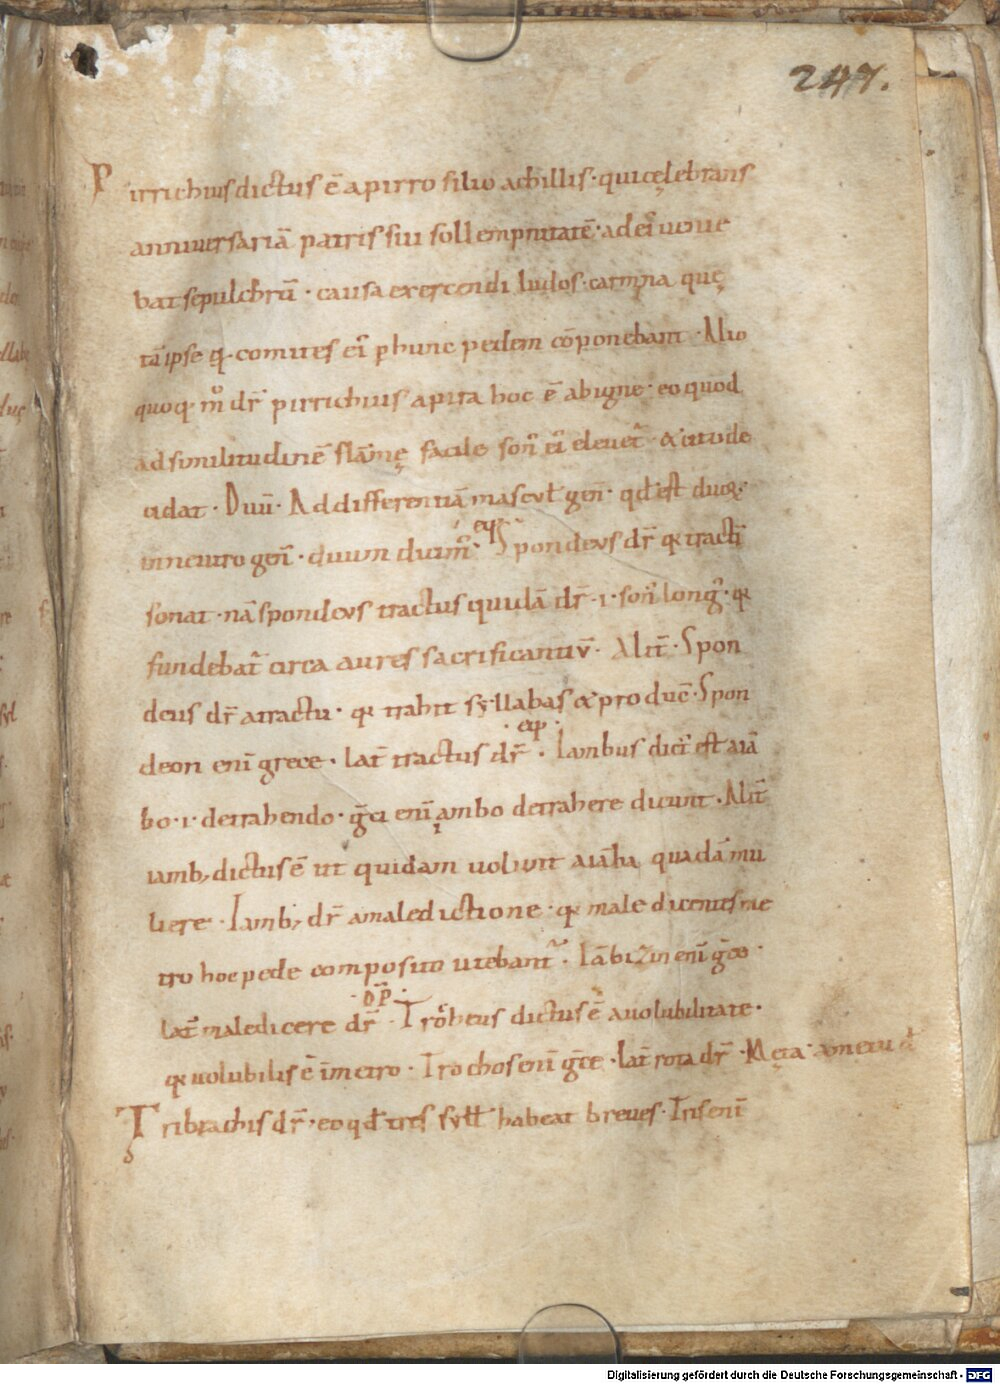 247.
Pirrichius dictus ē a pirro filio achillis · qui cęlebrans
anniversariā patris sui sollempnitatē · ad ei᷒ uoue
bat sepulchrū · causa exercendi ludos · carmina quę
tā ipse q̄ · comites ei᷒ p hunc pedem cōponebant · Alio
quoq · mͦ dr̄ pirrichius a pira hoc ē ab igne · eo quod
ad similitudinē flām̄ę facile son᷒ ei᷒ eleuet᷒ · & cito de
cidat · Duū · Ad differentiā mascul̄ gen̄ · qd̄ est duoꝝ ·
in neutro gen̄ · duum duim᷒ · Spondeus dr̄ q tracti᷒
sonat · nā spondeus tractus quidā dr̄ · i · son᷒ long᷒ · q
fundebat᷒ circa aures sacrificantiū · Alit̄ · Spon
deus dr̄ a tractu · q trahit syllabas & producē · Spon
deon enī grece · lat̄ tractus dr̄ · Iambus dict᷒ est a iā
bo · i · detrahendo · grc̄i enī ambo detrahere dicunt · Alit̄
iamb; dictus ē ut quidam uolunt a iāba quadā mu
liere · Iamb; dr̄ a maledictione · q maledicentes me
tro hoc pede composito utebant᷒ · Iābizin enī grc̄o ·
lat̄ maledicere dr̄ · Trocheus dictus ē a uolubilitate ·
q uolubilis ē ī metro · Trochos enī grc̄e · lat̄ rota dr̄ · Męta · a metu d̄
Tribrachis dr̄ · eo qd̄ tres syll̄ habeat breues · Tris enī
Digitalisierung gefördert durch die Deutsche Forschungsgemeinschaft - DFG